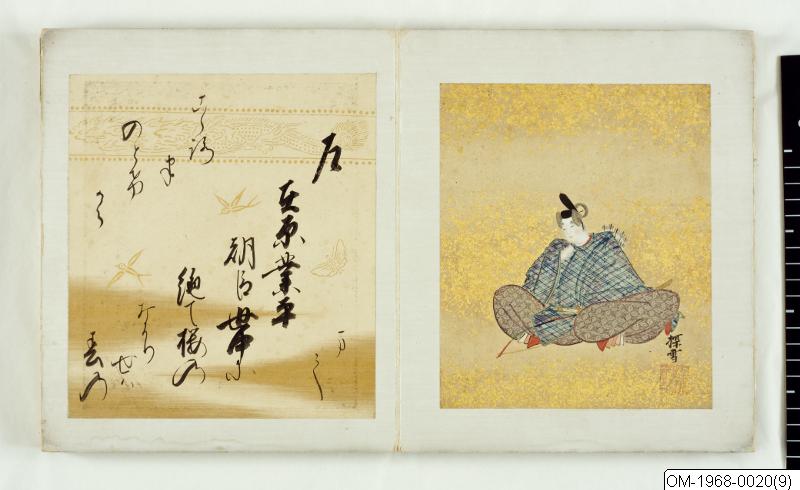 左
在原業平
朝臣
世中に
絶て桜の
なかり
せは
春の
こゝろ
は
のとけ
から
まし
探雪
OM-1968-0020(9)